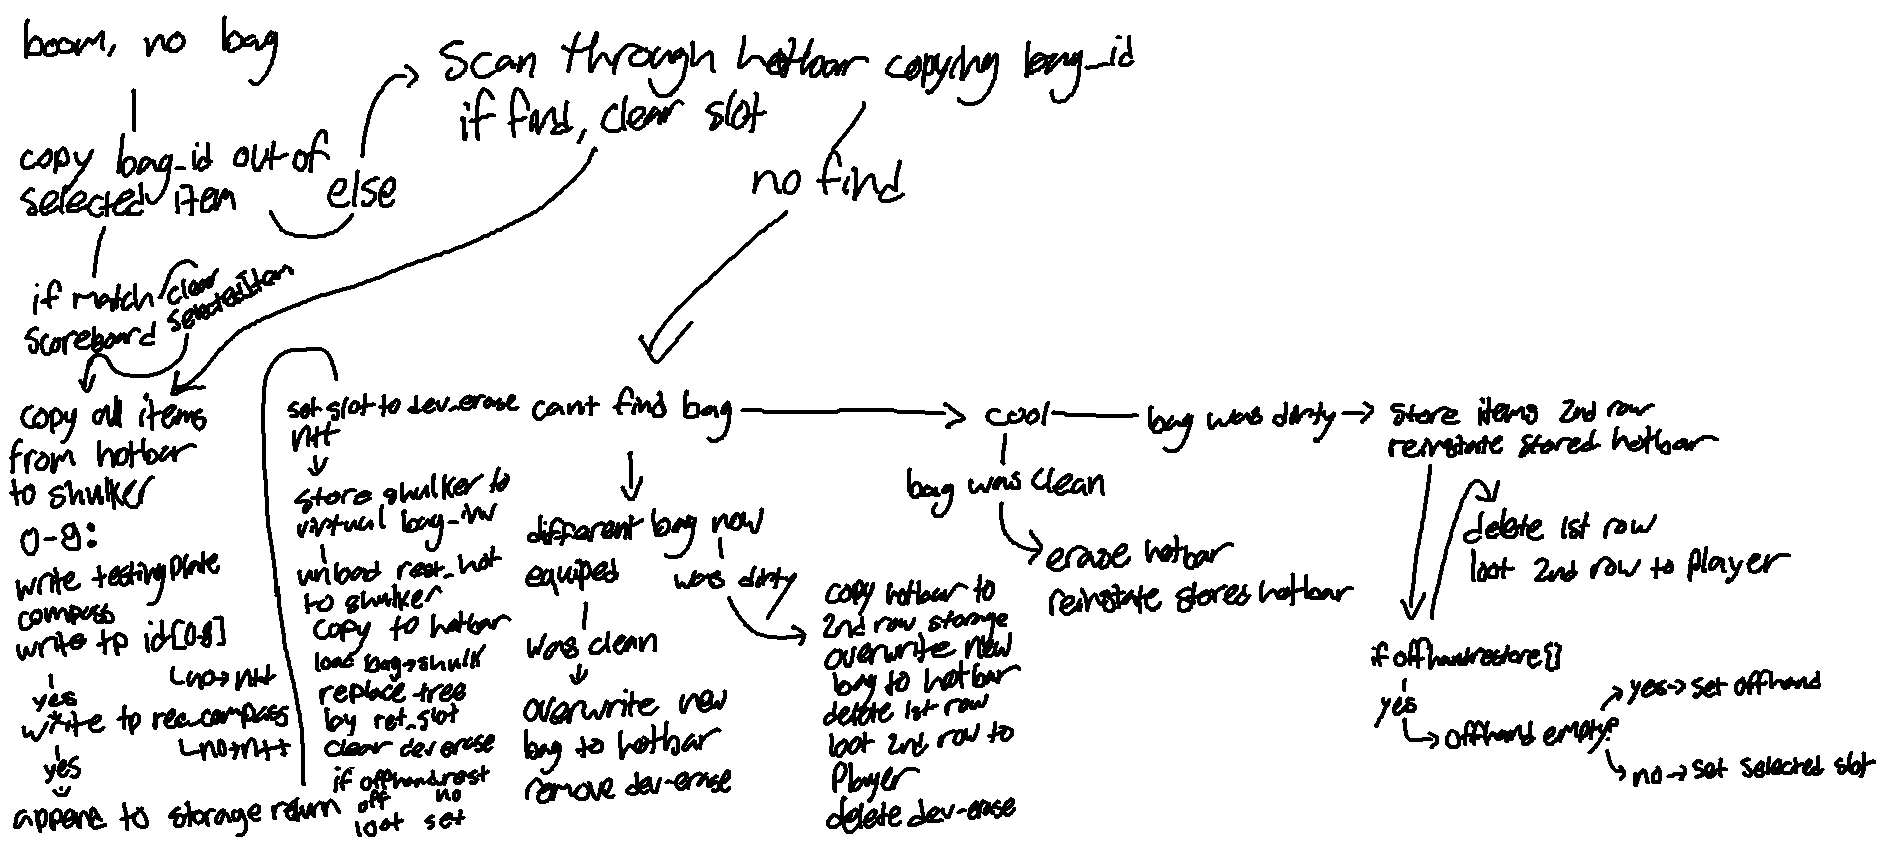 boom, no bag
copy bag_id out of
selected item
else
Scan through hotbar copying bag_id
if find, clear slot
no find
if match clear
scoreboard selecteditem
copy all items
from hotbar
to shulker
0-8:
write testingplate
compass
write tp id[0-8]
↳no→n++
yes
write to rec.compass
↳no→n++
yes
append to storage return
set slot to dev_erase
n++
store shulker to
virtual bag_inv
unload rest_hot
to shulker
copy to hotbar
load bag→shulk
replace tree
by ret_slot
clear dev erase
if offhand.rest
off no
loot set
cant find bag
different bag now
equiped
was clean
overwrite new
bag to hotbar
remove dev-erase
was dirty
copy hotbar to
2nd row storage
overwrite new
bag to hotbar
delete 1st row
loot 2nd row to
Player
delete dev-erase
cool
bag was clean
erase hotbar
reinstate stores hotbar
bag was dirty
store items 2nd row
reinstate stored hotbar
delete 1st row
loot 2nd row to Player
if offhandrestore[]
yes
offhand empty?
yes→set offhand
no→set selected slot